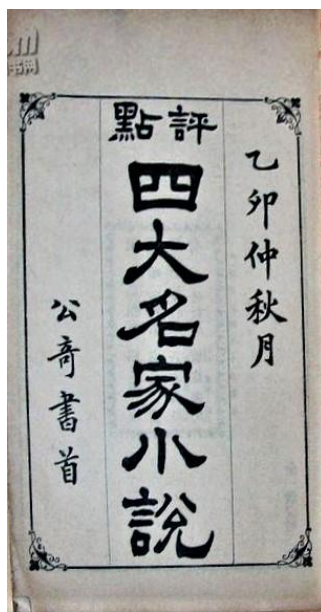 乙卯仲秋月
評點
四大名家小說
公奇書首